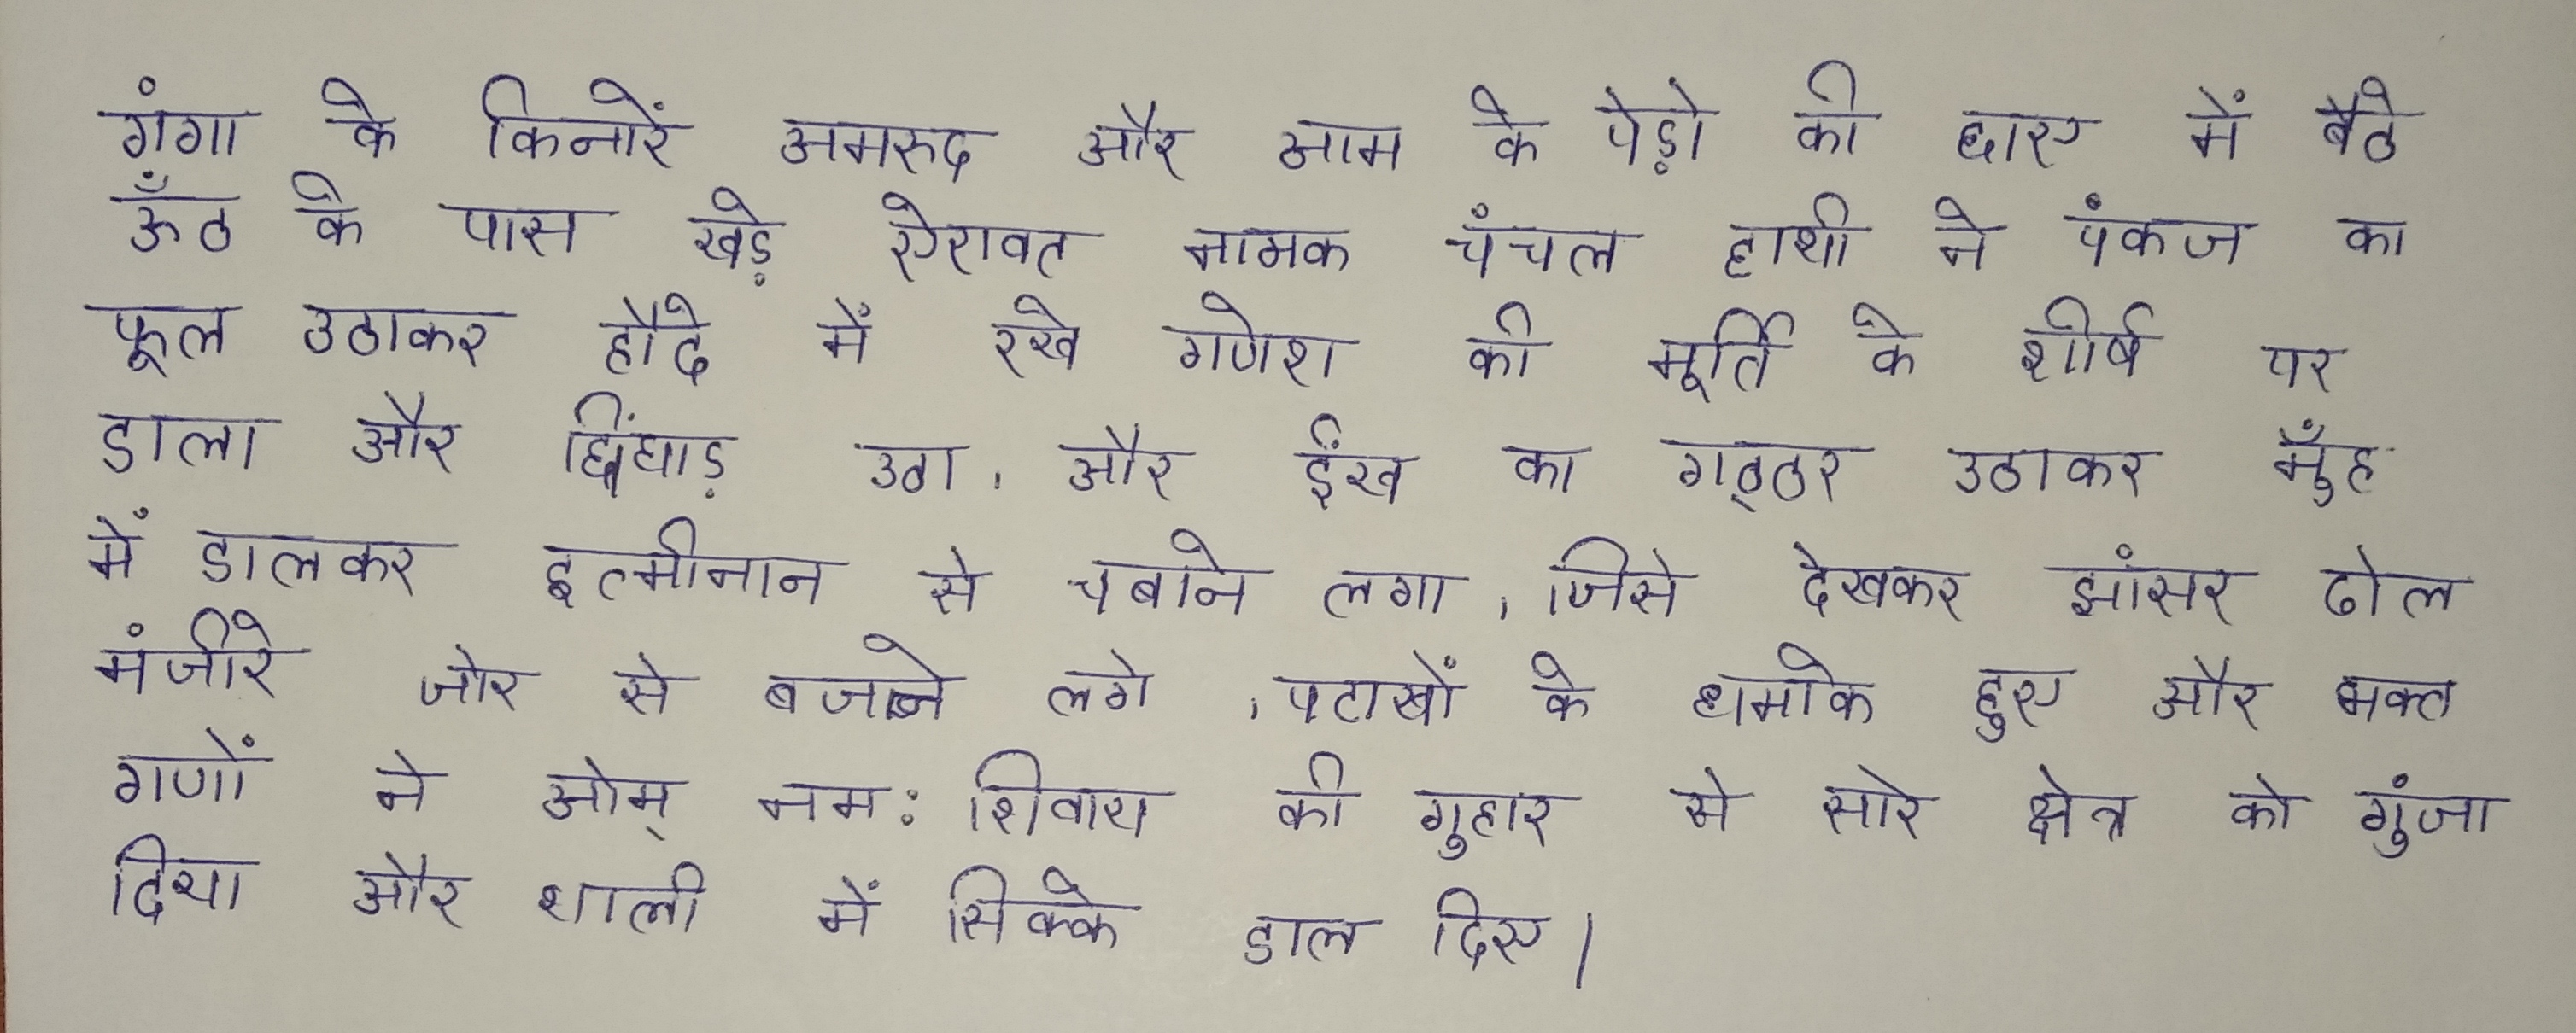 गंगा के किनारें अमरुद और आम के पेड़ो की छाए में बैठे
ऊँठ के पास खड़े ऐरावत नामक चंचल हाथी ने पंकज का
फूल उठाकर हौदे में रखे गणेश की मूर्ति के शीर्ष पर
डाला और छिंघाड़ उठा, और ईंख का गठ्ठर उठाकर मुँह
में डालकर इत्मीनान से चबाने लगा, जिसे देखकर झांसर ढोल
मंजीरे जोर से बजाने लगे, पटाखों के धमाके हुए और भक्त
गणों ने ओम् नमः शिवाय की गुहार से सारे क्षेत्र को गुंजा
दिया और थाली में सिक्के डाल दिए।